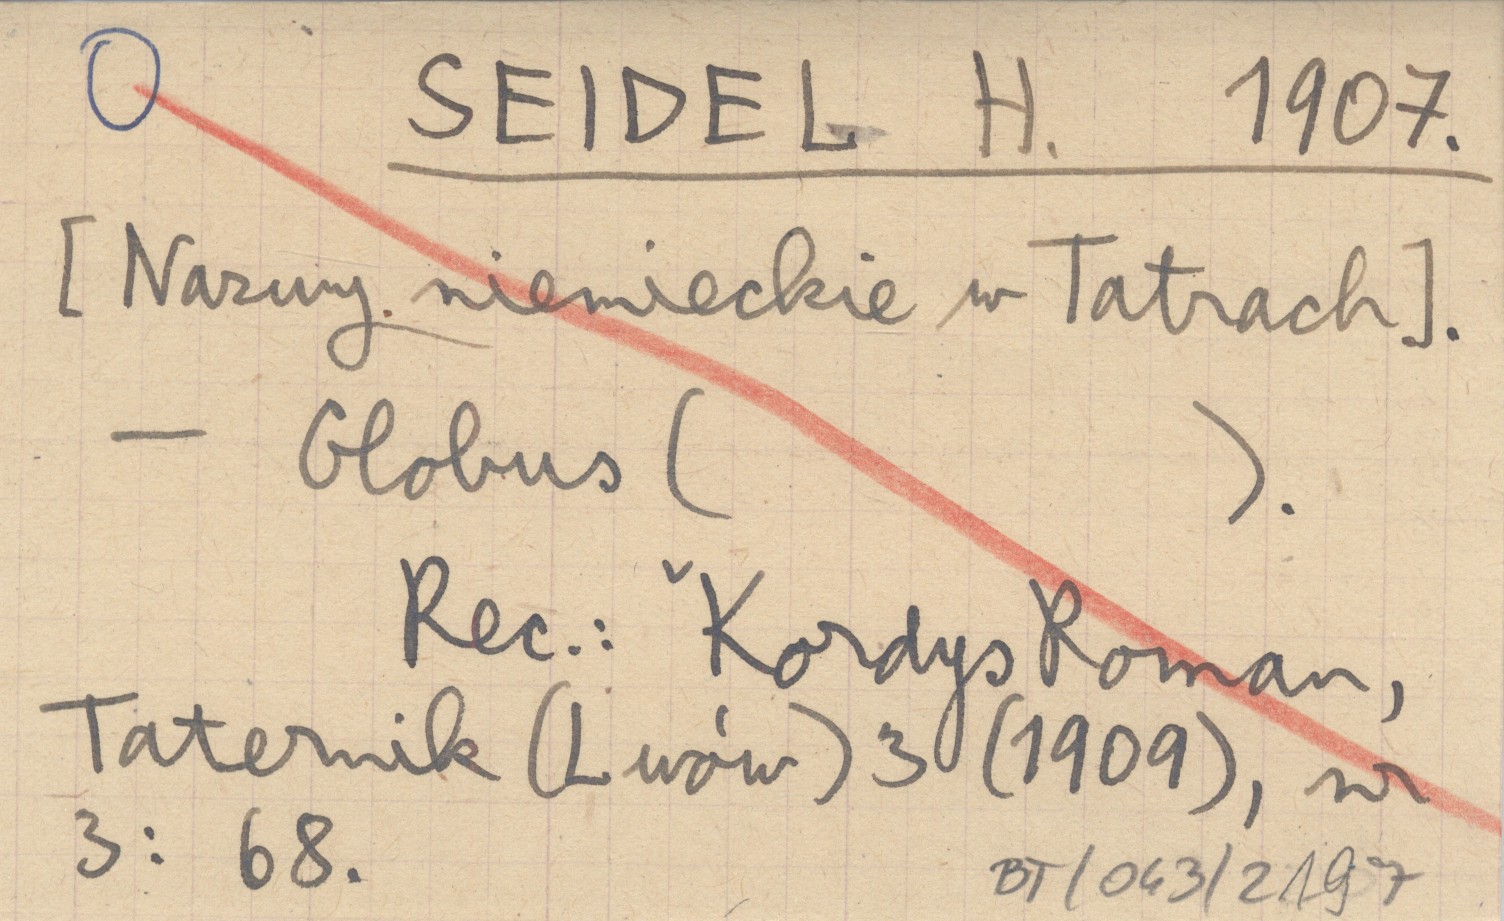 O SEIDEL H. 1907.
[Nazwy niemieckie w Tatrach].
— Globus ( ).
Rec.: ˇKordys Roman,
Taternik (Lwów) 3 (1909), nr
3: 68.
BT/043/2197